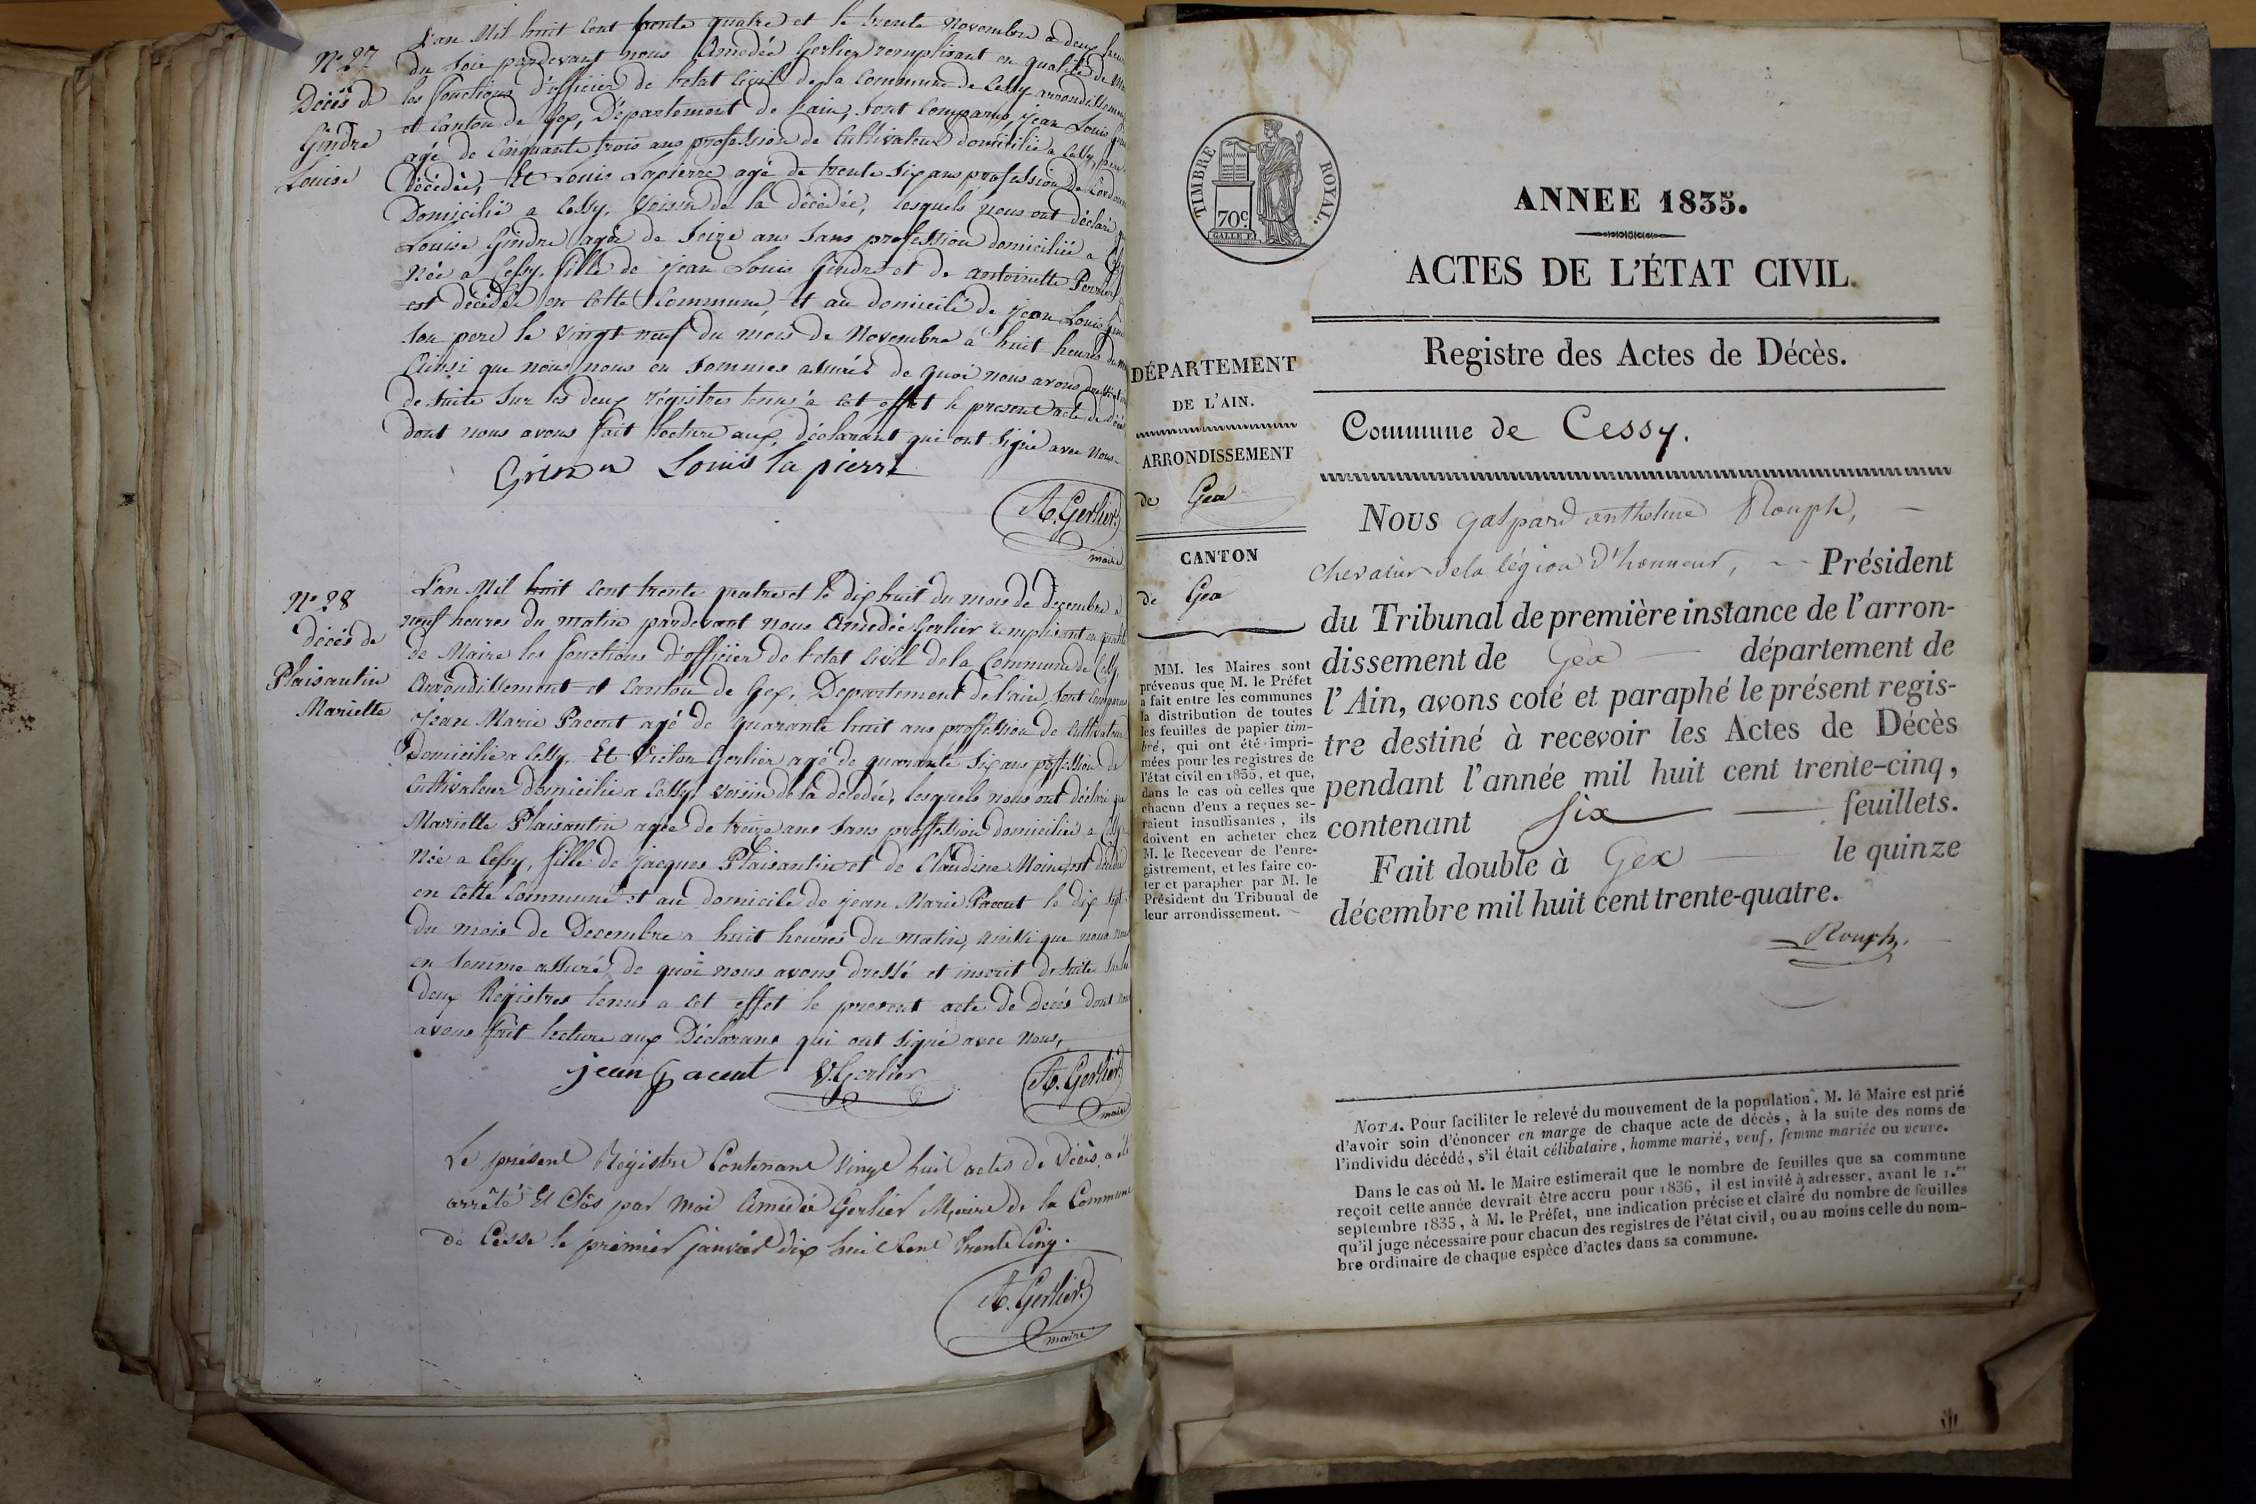 N° 27
Décès de
Gindre
Louise
L'an Mil huit Cent trente quatre et le trente Novembre a deux heures
du soir pardevant nous Amedée Gerlier remplisant en qualité de
les fonctions d'officier de l'etat Civil de la Commune de Cessy arrondissement
et Canton de Gex, Département de l'ain, sont Comparus, jean Louis
agé de Cinquante trois ans profession de Cultivateur domicilié a Cessy, pere
Décédée, et Louis Lapierre agé de trente six ans profession de
Domicilié a Cessy, voisin de la décédée, lesquels nous ont déclaré
Louise Gindre agée de seize ans sans profession domiciliée a
Née a Cessy, fille de jean Louis Gindre et de antoinette
est décédée en cette Commune, et au domicile de jean Louis
son pere le vingt neuf du mois de Novembre à huit heures du
Ainsi que nous nous en sommes assurés de quoi nous avons
de suite sur les deux régistres tenus à cet effet le present acte de décès
dont nous avons fait lecture aux déclarant qui ont signé avec Nous.
Louis la pierre
A. Gerlier
maire
N° 28
décès de
Plaisantin
Mariette
L'an Mil huit Cent trente quatre et le dix huit du mois de décembre à
neuf heures du matin pardevant nous Amedée Gerlier remplisant en qualité
de Maire les fonctions d'officier de l'etat Civil de la Commune de Cessy
Arrondissement et Canton de Gex, Département de l'ain, sont Comparus
Jean Marie Pacout agé de quarante huit ans proffession de Cultivateur
Domicilié a Cessy. Et Victor Gerlier agé de quarante six ans proffession de
Cultivateur Domicilié a Cessy, voisin de la décédée, lesquels nous ont déclaré que
Mariette Plaisantin agée de treize ans sans proffession domiciliée a
Née a Cessy, fille de jacques Plaisantin et de Claudine Moine, est décédée
en cette Commune et au domicile de jean Marie Pacout le dix sept
du mois de Decembre a huit heures du matin, ainsi que nous nous
en somme assuré, de quoi nous avons dressé et inscrit de suite sur les
deux Régistres tenus a cet effet le present acte de decés dont nous
avons fait lecture aux Déclarans qui ont signé avec Nous,
jean pacout V. Gerlier A. Gerlier
maire
Le présent Régistre Contenant Vingt huit actes de Décès a été
arrêté et Clos par moi Amédée Gerlier Maire de la Commune
de Cesse le prémier janvier dix huit Cent trente Cinq.
A. Gerlier
maire
TIMBRE ROYAL.
70 c.
ANNEE 1835.
ACTES DE L'ÉTAT CIVIL.
Registre des Actes de Décès.
DÉPARTEMENT
DE L'AIN.
ARRONDISSEMENT
de Gex
CANTON
de Gex
MM. les Maires sont
prévenus que M. le Préfet
a fait entre les communes
la distribution de toutes
les feuilles de papier tim-
bré, qui ont été impri-
mées pour les registres de
l'état civil en 1835, et que,
dans le cas où celles que
chacun d'eux a reçues se-
raient insuffisantes, ils
doivent en acheter chez
M. le Receveur de l'enre-
gistrement, et les faire co-
ter et parapher par M. le
Président du Tribunal de
leur arrondissement.
Commune de Cessy.
Nous Gaspard anthelme Rouph,
chevalier de la légion d'honneur, Président
du Tribunal de première instance de l'arron-
dissement de Gex département de
l'Ain, avons coté et paraphé le présent regis-
tre destiné à recevoir les Actes de Décès
pendant l'année mil huit cent trente-cinq,
contenant six feuillets.
Fait double à Gex le quinze
décembre mil huit cent trente-quatre.
Rouph.
NOTA. Pour faciliter le relevé du mouvement de la population, M. le Maire est prié
d'avoir soin d'énoncer en marge de chaque acte de décès, à la suite des noms de
l'individu décédé, s'il était célibataire, homme marié, veuf, femme mariée ou veuve.
Dans le cas où M. le Maire estimerait que le nombre de feuilles que sa commune
reçoit cette année devrait être accru pour 1836, il est invité à adresser, avant le 1.er
septembre 1835, à M. le Préfet, une indication précise et claire du nombre de feuilles
qu'il juge nécessaire pour chacun des registres de l'état civil, ou au moins celle du nom-
bre ordinaire de chaque espèce d'actes dans sa commune.